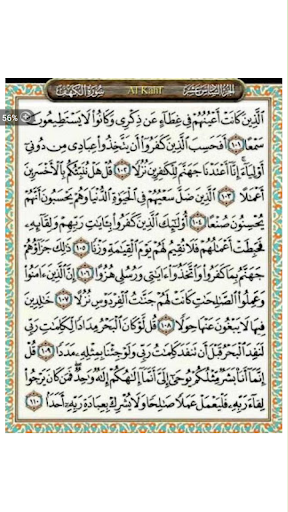 الجزء السادس عشر
Al Kahf
سورة الكهف
56%
ٱلَّذِينَ كَانَتْ أَعْيُنُهُمْ فِى غِطَآءٍ عَن ذِكْرِى وَكَانُوا۟ لَا يَسْتَطِيعُونَ
سَمْعًا ١٠١ أَفَحَسِبَ ٱلَّذِينَ كَفَرُوٓا۟ أَن يَتَّخِذُوا۟ عِبَادِى مِن دُونِىٓ
أَوْلِيَآءَ إِنَّآ أَعْتَدْنَا جَهَنَّمَ لِلْكَٰفِرِينَ نُزُلًا ١٠٢ قُلْ هَلْ نُنَبِّئُكُم بِٱلْأَخْسَرِينَ
أَعْمَٰلًا ١٠٣ ٱلَّذِينَ ضَلَّ سَعْيُهُمْ فِى ٱلْحَيَوٰةِ ٱلدُّنْيَا وَهُمْ يَحْسَبُونَ أَنَّهُمْ
يُحْسِنُونَ صُنْعًا ١٠٤ أُو۟لَٰٓئِكَ ٱلَّذِينَ كَفَرُوا۟ بِـَٔايَٰتِ رَبِّهِمْ وَلِقَآئِهِۦ
فَحَبِطَتْ أَعْمَٰلُهُمْ فَلَا نُقِيمُ لَهُمْ يَوْمَ ٱلْقِيَٰمَةِ وَزْنًا ١٠٥ ذَٰلِكَ جَزَآؤُهُمْ
جَهَنَّمُ بِمَا كَفَرُوا۟ وَٱتَّخَذُوٓا۟ ءَايَٰتِى وَرُسُلِى هُزُوًا ١٠٦ إِنَّ ٱلَّذِينَ ءَامَنُوا۟
وَعَمِلُوا۟ ٱلصَّٰلِحَٰتِ كَانَتْ لَهُمْ جَنَّٰتُ ٱلْفِرْدَوْسِ نُزُلًا ١٠٧ خَٰلِدِينَ
فِيهَا لَا يَبْغُونَ عَنْهَا حِوَلًا ١٠٨ قُل لَّوْ كَانَ ٱلْبَحْرُ مِدَادًا لِّكَلِمَٰتِ رَبِّى
لَنَفِدَ ٱلْبَحْرُ قَبْلَ أَن تَنفَدَ كَلِمَٰتُ رَبِّى وَلَوْ جِئْنَا بِمِثْلِهِۦ مَدَدًا ١٠٩ قُلْ
إِنَّمَآ أَنَا۠ بَشَرٌ مِّثْلُكُمْ يُوحَىٰٓ إِلَىَّ أَنَّمَآ إِلَٰهُكُمْ إِلَٰهٌ وَٰحِدٌ فَمَن كَانَ يَرْجُوا۟
لِقَآءَ رَبِّهِۦ فَلْيَعْمَلْ عَمَلًا صَٰلِحًا وَلَا يُشْرِكْ بِعِبَادَةِ رَبِّهِۦٓ أَحَدًۢا ١١٠